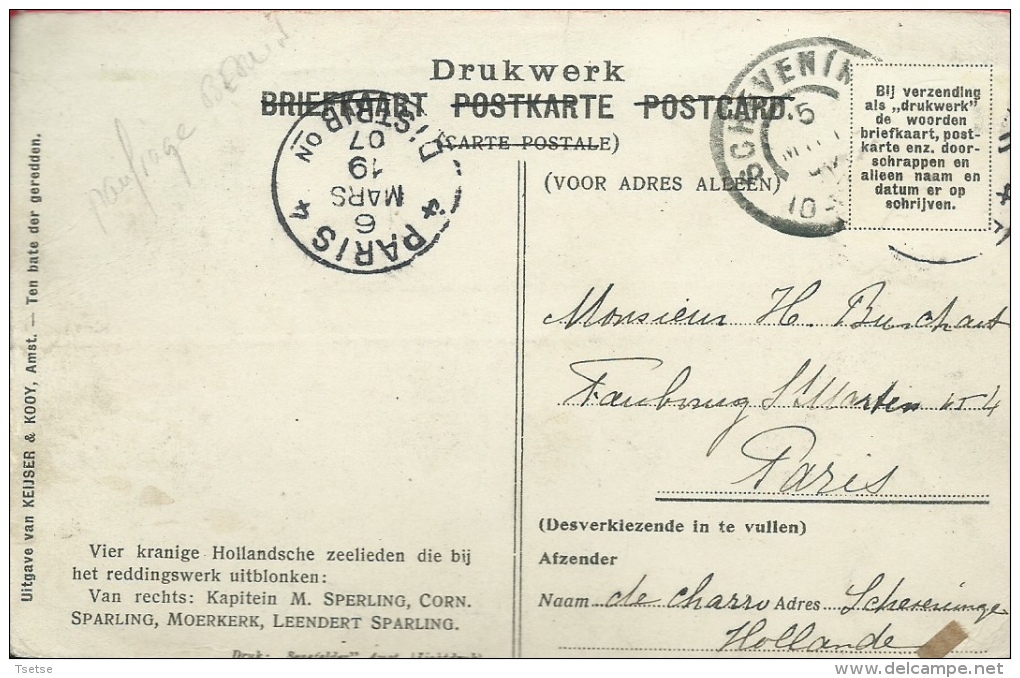 Drukwerk
BRIEFKAART POSTKARTE POSTCARD.
(CARTE POSTALE)
(VOOR ADRES ALLEEN)
Bij verzending
als „drukwerk"
de woorden
briefkaart, post-
karte enz. door-
schrappen en
alleen naam en
datum er op
schrijven.
5
10
PARIS
DISTRIBON
6
MARS
19
07
Monsieur H.
Faubourg St Marten
Paris
(Desverkiezende in te vullen)
Afzender
Naam de Charro Adres
Hollande
Vier kranige Hollandsche zeelieden die bij
het reddingswerk uitblonken:
Van rechts: Kapitein M. SPERLING, CORN.
SPARLING, MOERKERK, LEENDERT SPARLING.
Uitgave van KEIJSER & KOOY, Amst. — Ten bate der geredden.
Tsetse
delcampe.net